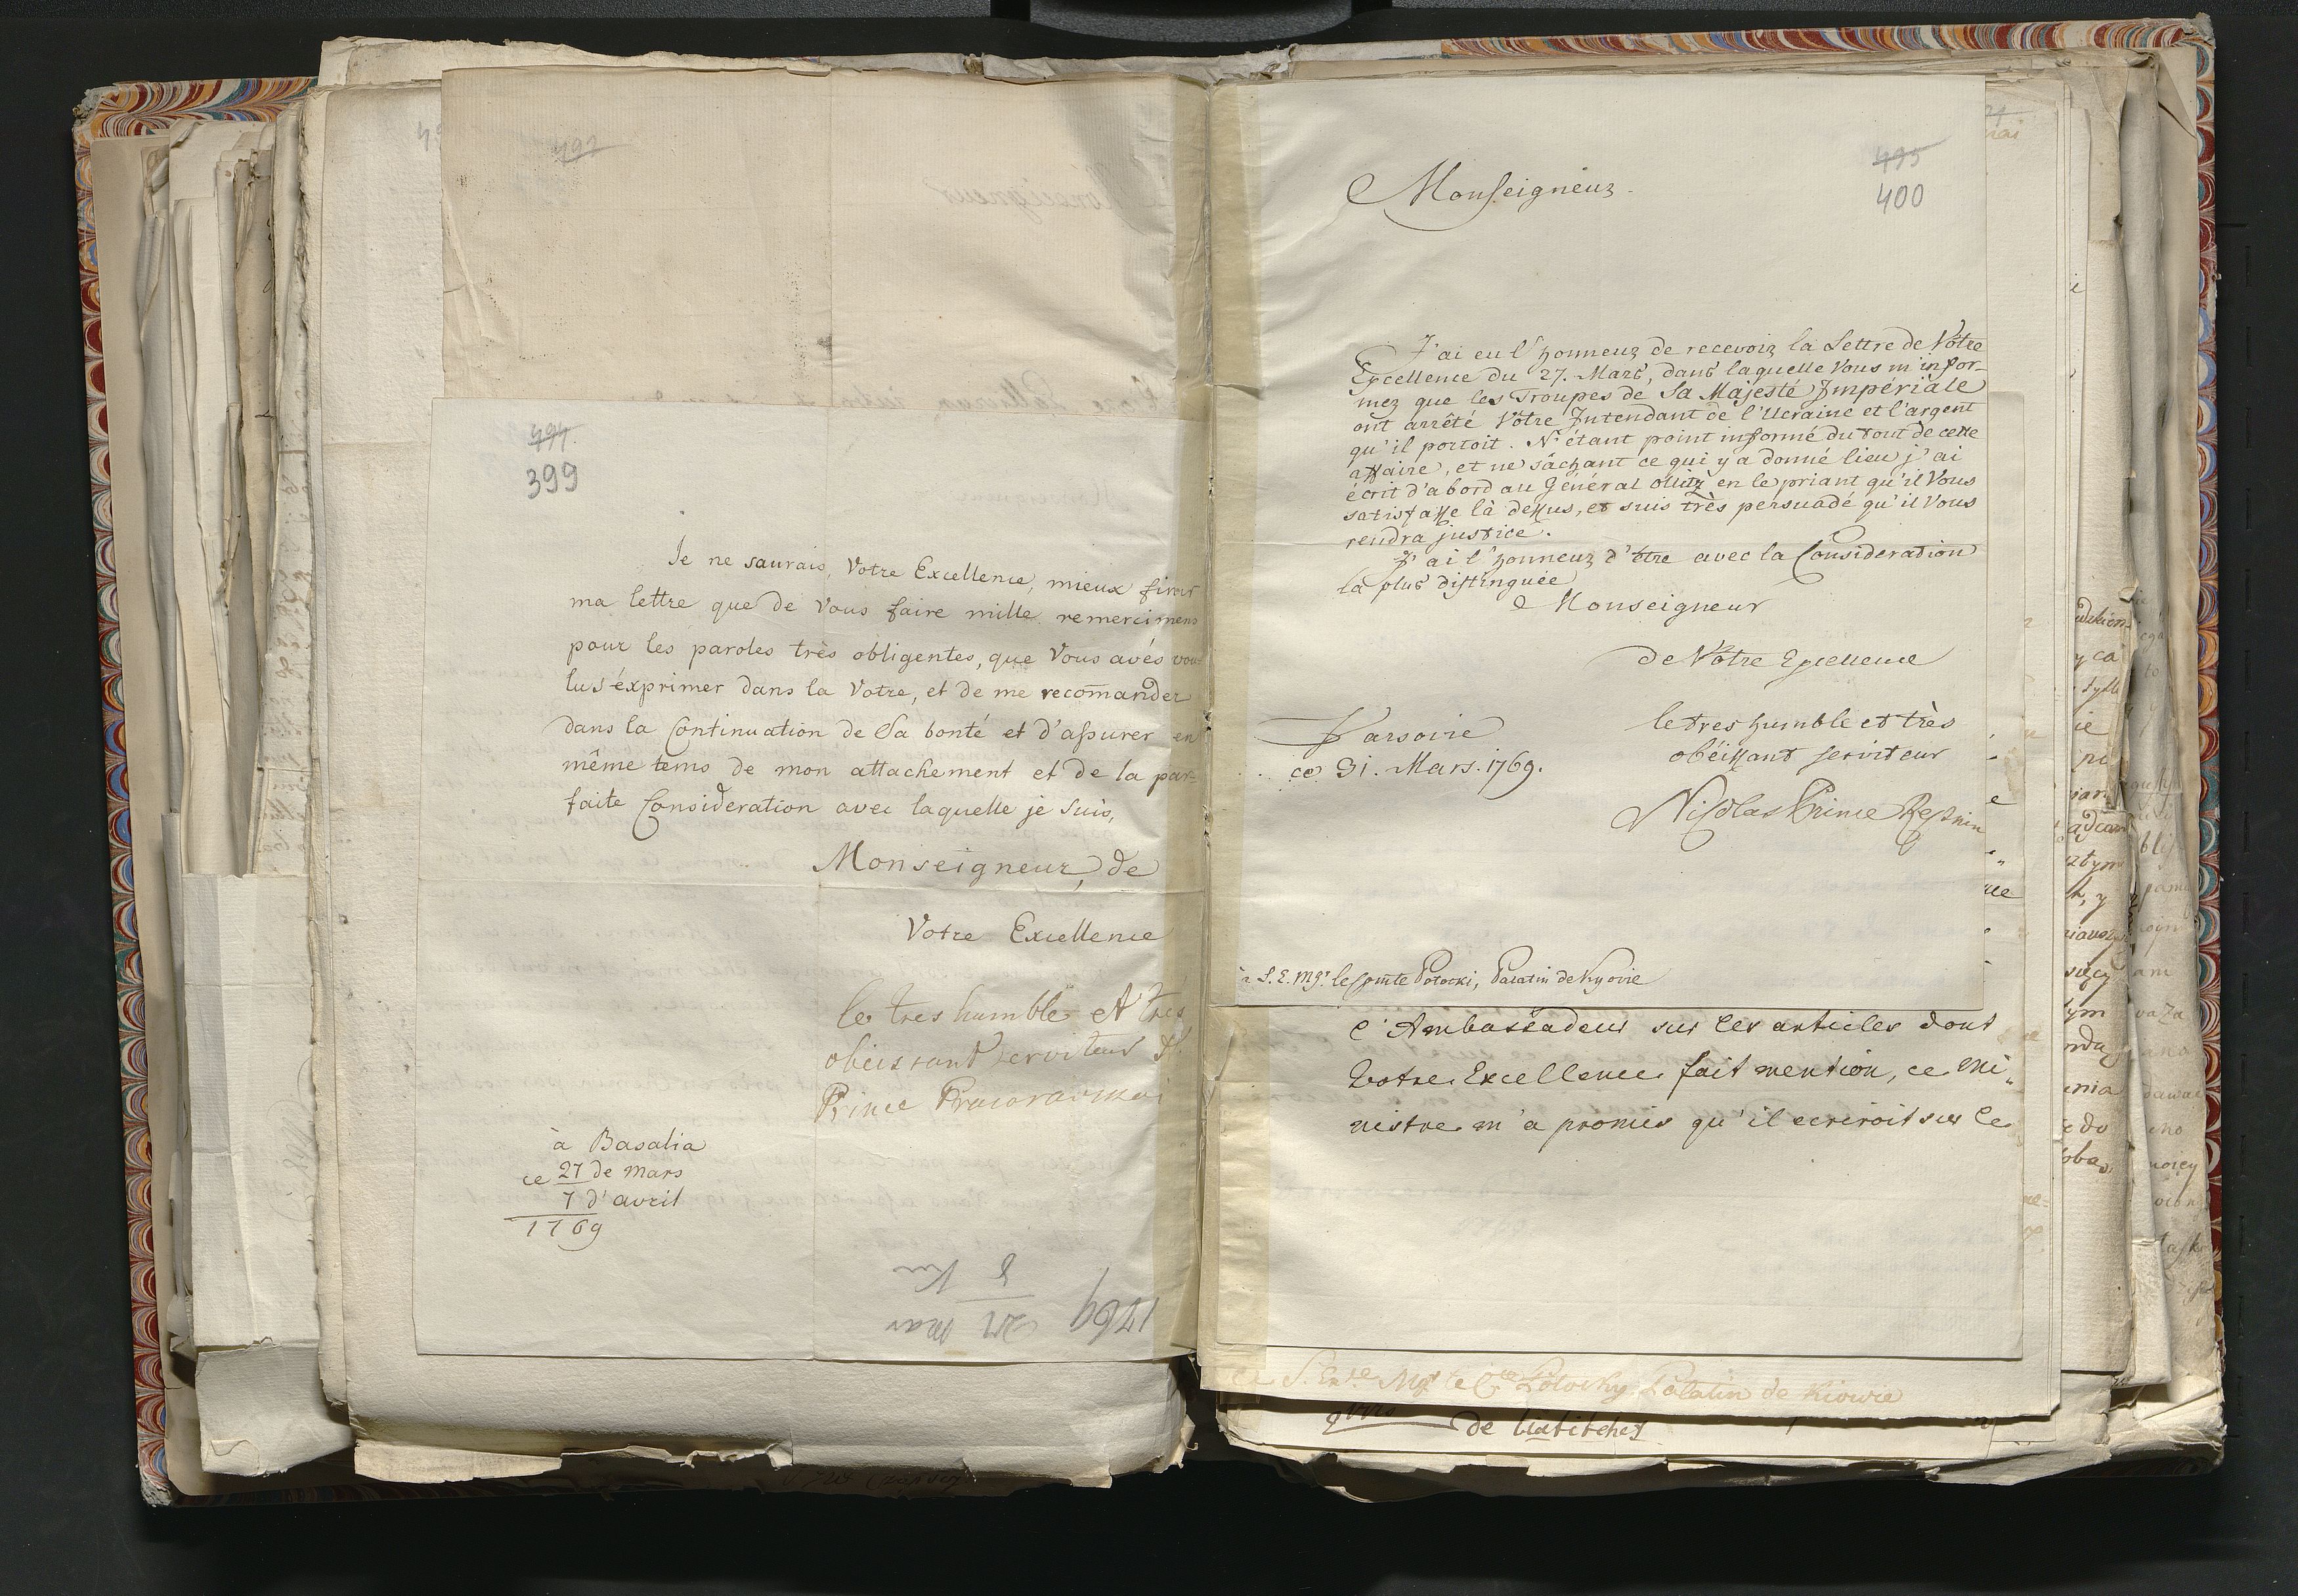 492
494
399
Je ne saurais, Votre Excellence, mieux finir
ma lettre que de Vous faire mille remercimens
pour les paroles très obligentes, que Vous avés vou-
lus éxprimer dans la Votre, et de me recomander
dans la Continuation de Sa bonté et d'assurer en
même tems de mon attachement et de la par-
faite Consideration avec laquelle je suis,
Monseigneur, de
Votre Excellence
le tres humble et tres
obeissant serviteur
Prince
à Basalia
ce 27 de mars
7 d'avril
1769
1769 27 Mar
8
495
400
Monseigneur.
J'ai eu l'honneur de recevoir la Lettre de Vôtre
Excellence du 27. Mars, dans laquelle Vous m'infor-
mez que les Troupes de Sa Majesté Impériale
ont arrêté Vôtre Intendant de l'Ucraine et l'argent
qu'il portoit. N'étant point informé du tout de cette
affaire, et ne sâchant ce qui y a donné lieu j'ai
écrit d'abord au Général en le priant qu'il Vous
satisfasse là dessus, et suis très persuadé qu'il Vous
rendra justice.
J'ai l'honneur d'être avec la Consideration
la plus distinguée
Monseigneur
de Vôtre Excellence
le tres humble et très
obéissant serviteur
Varsovie
ce 31. Mars. 1769.
Nicolas Prince Repnin
à S. E. Mgr. le Comte Potocki, Palatin de Kyovie
l'Ambassadeur sur les articles dont
Votre Excellence fait mention, ce Mi„
nistre m'a promis qu'il ecriroit sur le
à S. Ex.ce Mgr le C.te Potocky Palatin de Kiowie
de Uatitches